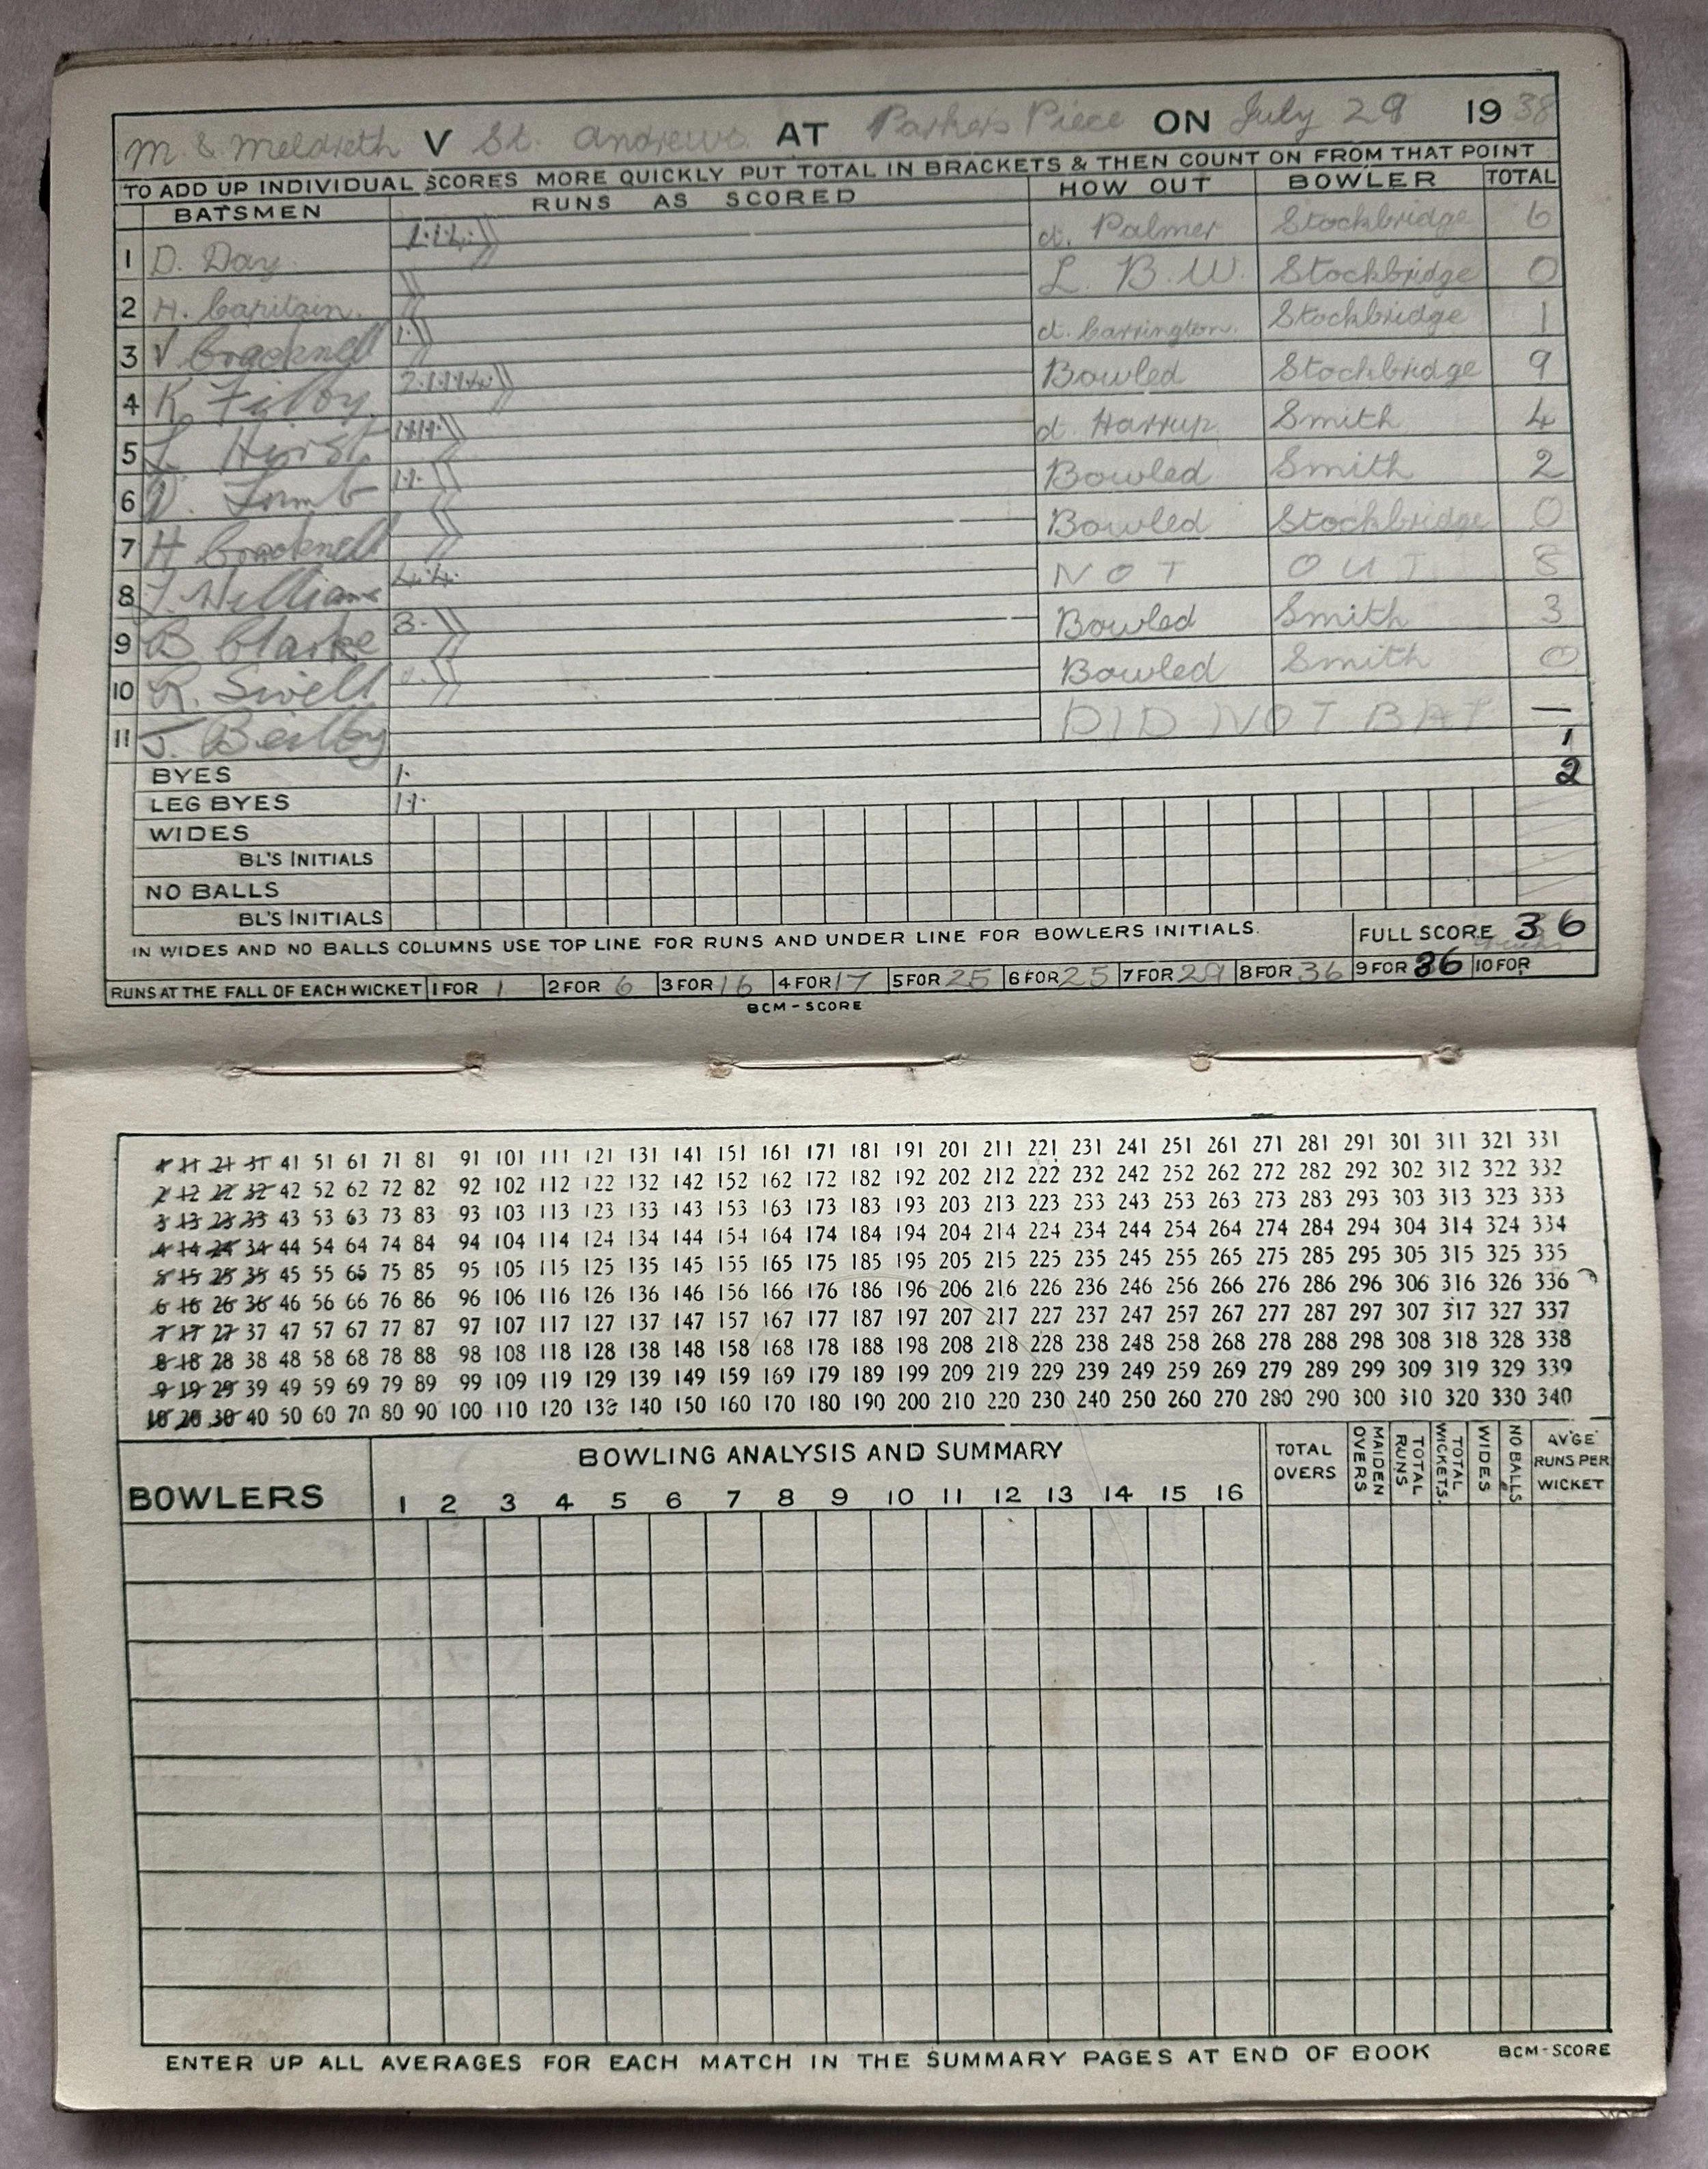 M. & Meldreth V St. Andrews AT Parkers Piece ON July 29 1938
TO ADD UP INDIVIDUAL SCORES MORE QUICKLY PUT TOTAL IN BRACKETS & THEN COUNT ON FROM THAT POINT
BATSMEN RUNS AS SCORED HOW OUT BOWLER TOTAL
1 D. Day 1.1.4. ct. Palmer Stockbridge 6
2 H. Capitain. L. B. W. Stockbridge 0
3 V Cracknell 1. ct. Carrington. Stockbridge 1
4 K. Filby. 2.1.1.1.4. Bowled Stockbridge 9
5 L. Hirst 1.1.1.1. ct Harrup Smith 4
6 1.1. Bowled Smith 2
7 H Cracknell Bowled Stockbridge 0
8 Williams 4.4. NOT OUT 8
9 B Clarke 3. Bowled Smith 3
10 R. Bowled Smith 0
11 J. Beilby DID NOT BAT —
BYES 1. 1
LEG BYES 1.1. 2
WIDES
BL'S INITIALS
NO BALLS
BL'S INITIALS
IN WIDES AND NO BALLS COLUMNS USE TOP LINE FOR RUNS AND UNDER LINE FOR BOWLERS INITIALS. FULL SCORE 36
RUNS AT THE FALL OF EACH WICKET 1 FOR 1 2 FOR 6 3 FOR 16 4 FOR 17 5 FOR 25 6 FOR 25 7 FOR 29 8 FOR 36 9 FOR 36 10 FOR
BCM-SCORE
1 11 21 31 41 51 61 71 81 91 101 111 121 131 141 151 161 171 181 191 201 211 221 231 241 251 261 271 281 291 301 311 321 331
2 12 22 32 42 52 62 72 82 92 102 112 122 132 142 152 162 172 182 192 202 212 222 232 242 252 262 272 282 292 302 312 322 332
3 13 23 33 43 53 63 73 83 93 103 113 123 133 143 153 163 173 183 193 203 213 223 233 243 253 263 273 283 293 303 313 323 333
4 14 24 34 44 54 64 74 84 94 104 114 124 134 144 154 164 174 184 194 204 214 224 234 244 254 264 274 284 294 304 314 324 334
5 15 25 35 45 55 65 75 85 95 105 115 125 135 145 155 165 175 185 195 205 215 225 235 245 255 265 275 285 295 305 315 325 335
6 16 26 36 46 56 66 76 86 96 106 116 126 136 146 156 166 176 186 196 206 216 226 236 246 256 266 276 286 296 306 316 326 336
7 17 27 37 47 57 67 77 87 97 107 117 127 137 147 157 167 177 187 197 207 217 227 237 247 257 267 277 287 297 307 317 327 337
8 18 28 38 48 58 68 78 88 98 108 118 128 138 148 158 168 178 188 198 208 218 228 238 248 258 268 278 288 298 308 318 328 338
9 19 29 39 49 59 69 79 89 99 109 119 129 139 149 159 169 179 189 199 209 219 229 239 249 259 269 279 289 299 309 319 329 339
10 20 30 40 50 60 70 80 90 100 110 120 130 140 150 160 170 180 190 200 210 220 230 240 250 260 270 280 290 300 310 320 330 340
BOWLING ANALYSIS AND SUMMARY
BOWLERS 1 2 3 4 5 6 7 8 9 10 11 12 13 14 15 16 TOTAL OVERS MAIDEN OVERS TOTAL RUNS TOTAL WICKETS. WIDES NO BALLS AV'GE RUNS PER WICKET
ENTER UP ALL AVERAGES FOR EACH MATCH IN THE SUMMARY PAGES AT END OF BOOK BCM-SCORE